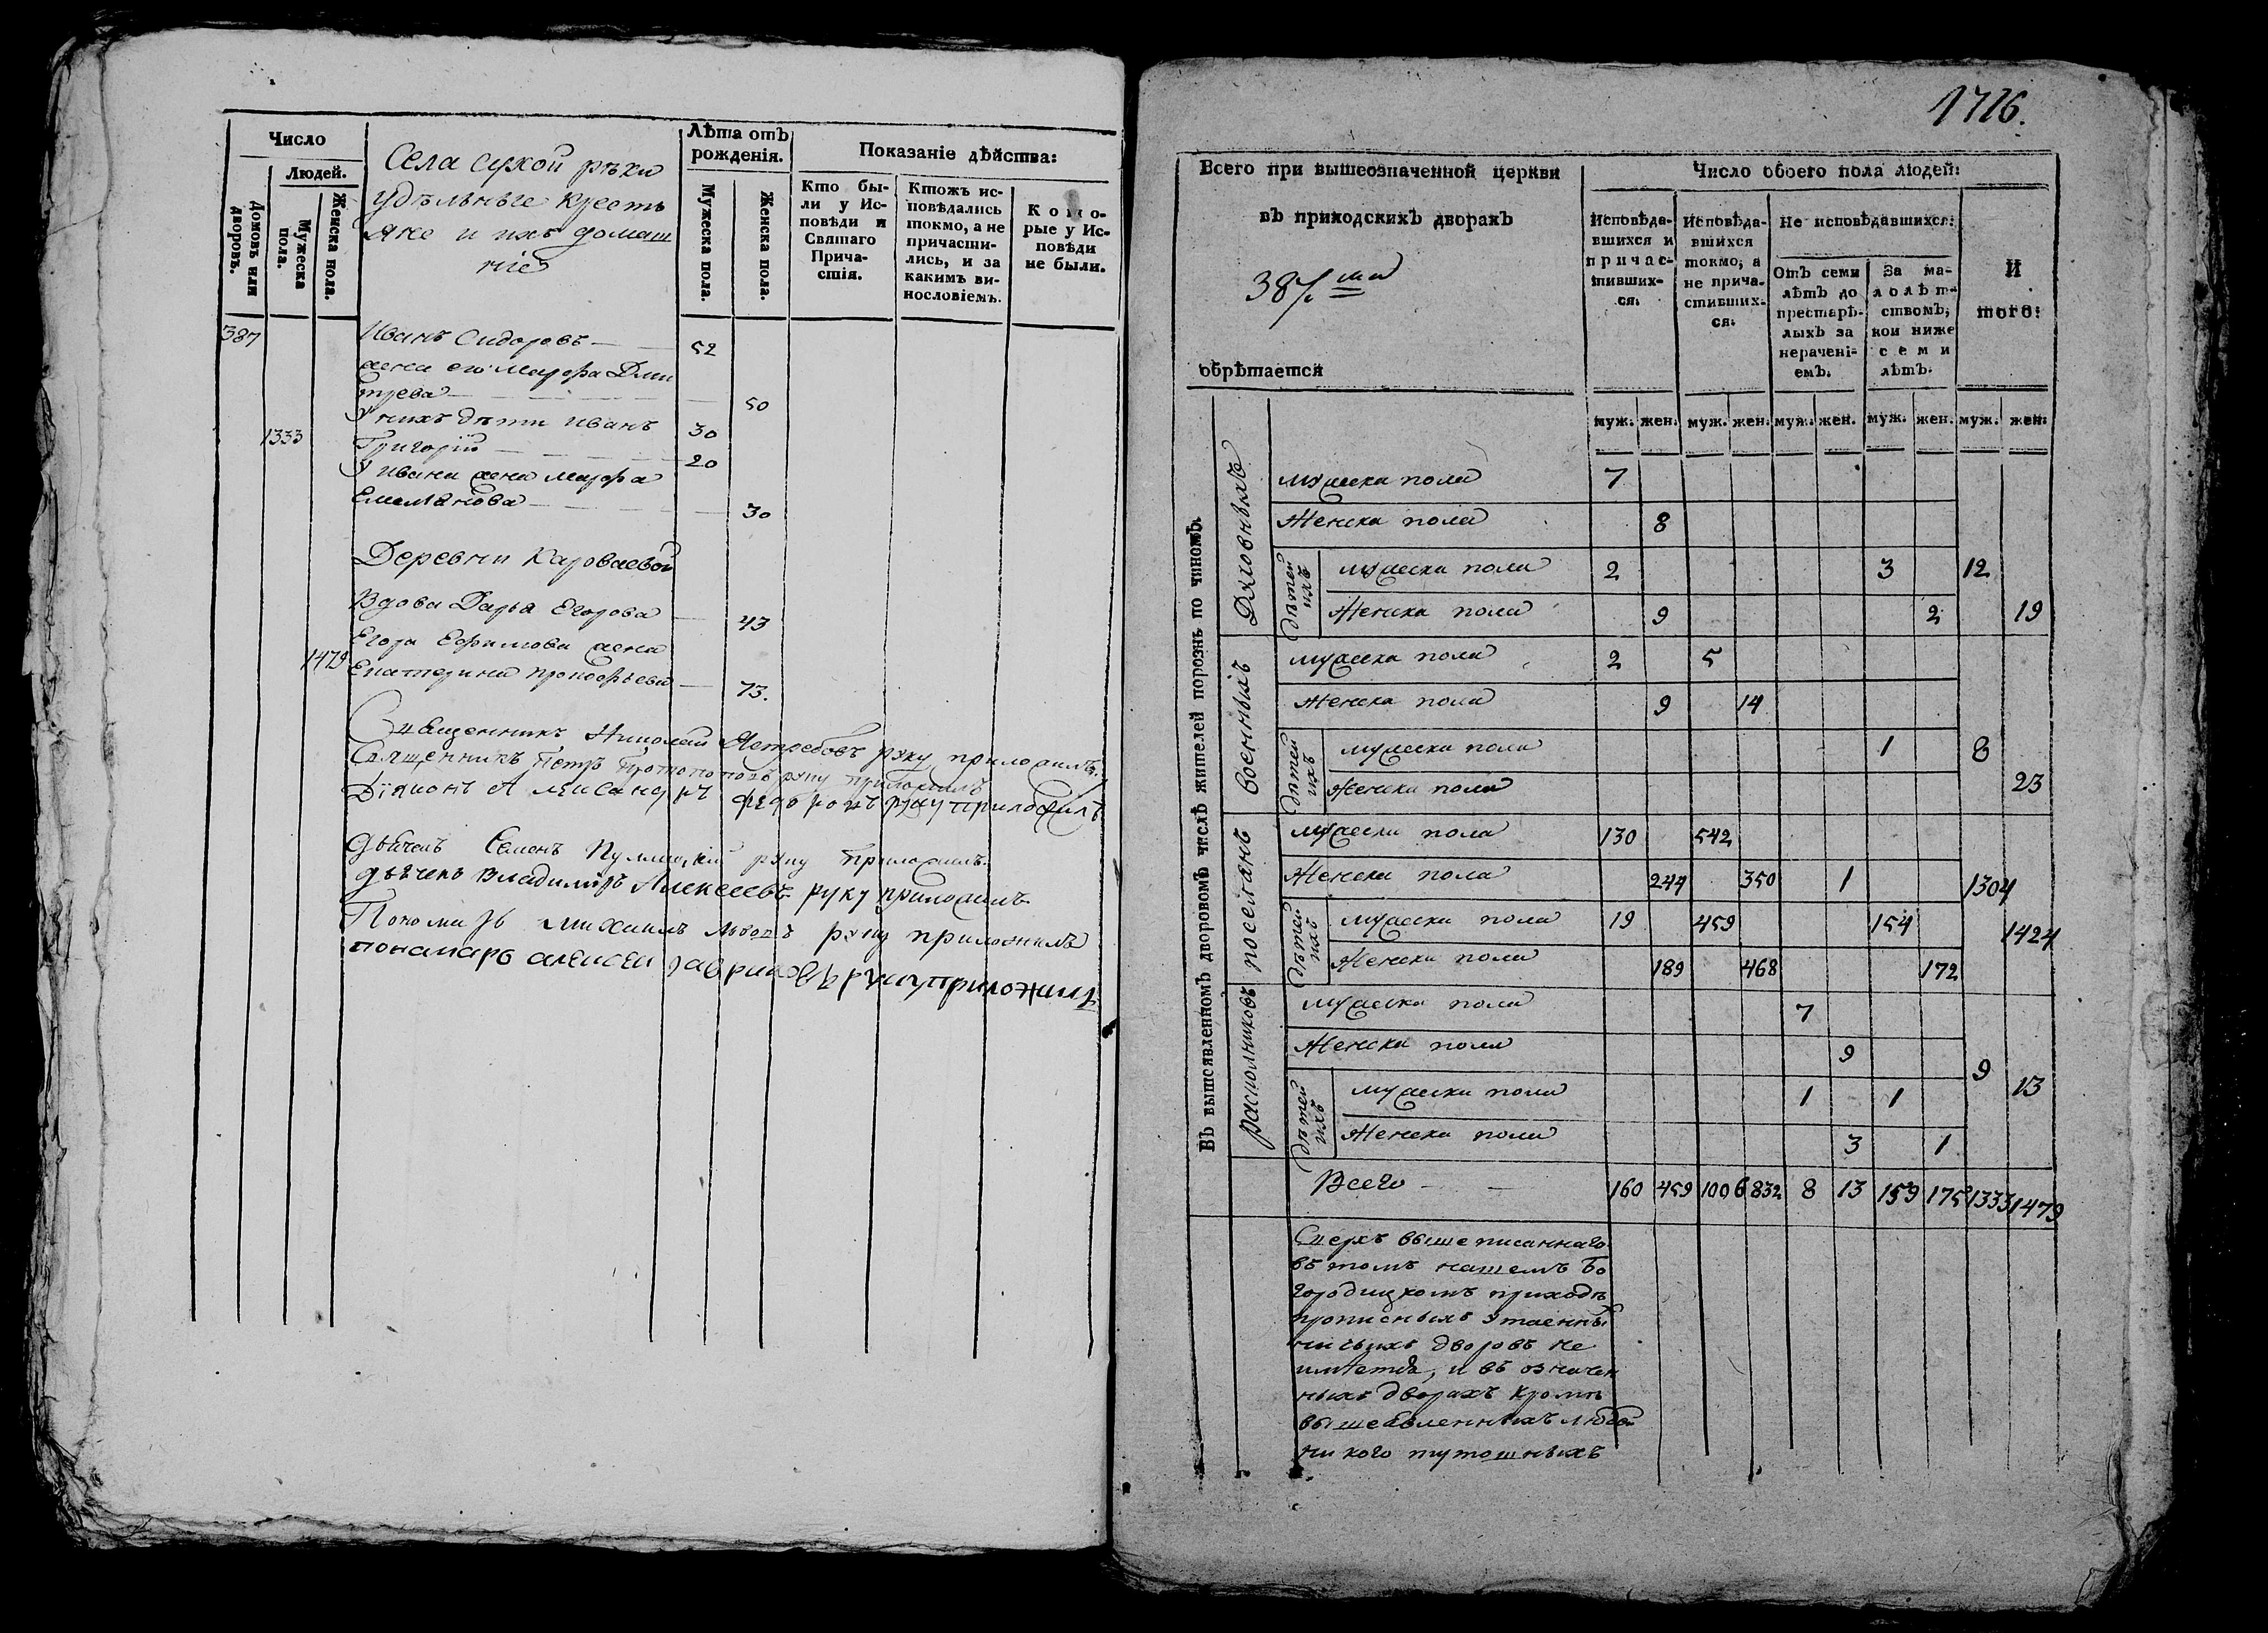 Число
Людей.
Домовъ или дворовъ.
Мужеска пола.
Женска пола.
Села сухой рѣки
удѣльные кресть
яне и ихъ домаш
ніе
Лѣта отъ рожденія.
Мужеска пола.
Женска пола.
Показаніе дѣйства:
Кто бы-
ли у Ис-
повѣди и
Святаго
Прича-
стія.
Ктожъ ис-
повѣдались
токмо, а не
причасти-
лись, и за
какимъ ви-
нословіемъ.
Кото-
рые у Ис-
повѣди
не были.
387 Иванъ Сидоровъ 52
жена его Марфа Дми
трева 50
У нихъ дѣти Иванъ 30
1333 Григорій 20
У Ивана жена Марфа
Емельянова 30
Деревни Караваевой
Вдова Дарья Егорова 43
Егора Ефимова жена
1479 Екатерина Прокофьева 73.
Священникъ Николай Ястребовъ руку приложилъ.
Священникъ Петръ Протопоповъ руку приложилъ
Діяконъ Александръ Федоровъ руку приложилъ
дьячекъ Семенъ руку приложилъ.
дьячекъ Владимиръ Алексеевъ руку приложилъ
Пономарь Михаилъ Львовъ руку приложилъ
понамарь алексеи гавриловъ руку приложилъ
1716.
Всего при вышеозначенной церкви
въ приходскихъ дворахъ
387.ми
обрѣтается
Число обоего пола людей:
Исповѣда-
вшихся и
причас-
тивших-
ся.
Исповѣда-
вшихся
токмо, а
не прича-
стивших-
ся.
Не исповѣдавшихся:
Отъ семи
лѣтъ до
престарѣ-
лыхъ за
нерачені-
емъ.
За ма-
лолѣт-
ствомъ,
кои ниже
семи
лѣтъ.
И
того:
муж. жен. муж. жен. муж. жен. муж. жен. муж. жен.
Въ вышеявленномъ дворовомъ числѣ жителей порознь по чиномъ.
Духовныхъ
мужеска пола 7
Женска пола 8
дѣтей ихъ
мужеска пола 2 3 12
Женска пола 9 2 19
Военныхъ
мужеска пола 2 5
Женска пола 9 14
дѣтей ихъ
мужеска пола 1 8
Женска пола 23
поселянъ
мужеска пола 130 542
Женска пола 244 350 1 1304
дѣтей ихъ
мужеска пола 19 459 154 1424
Женска пола 189 468 172
раскольниковъ
мужеска пола 7
Женска пола 9 9
дѣтей ихъ
мужеска пола 1 1 13
Женска пола 3 1
Всего 160 459 1006 832 8 13 159 175 1333 1479
Сверхъ вышеписаннаго
въ томъ нашемъ Бо
городицкомъ приходѣ
прописныхъ утаенны
ничьихъ дворовъ не
имѣется, и въ означен
ныхъ дворахъ кромѣ
вышеявленныхъ людей
никого тутошныхъ